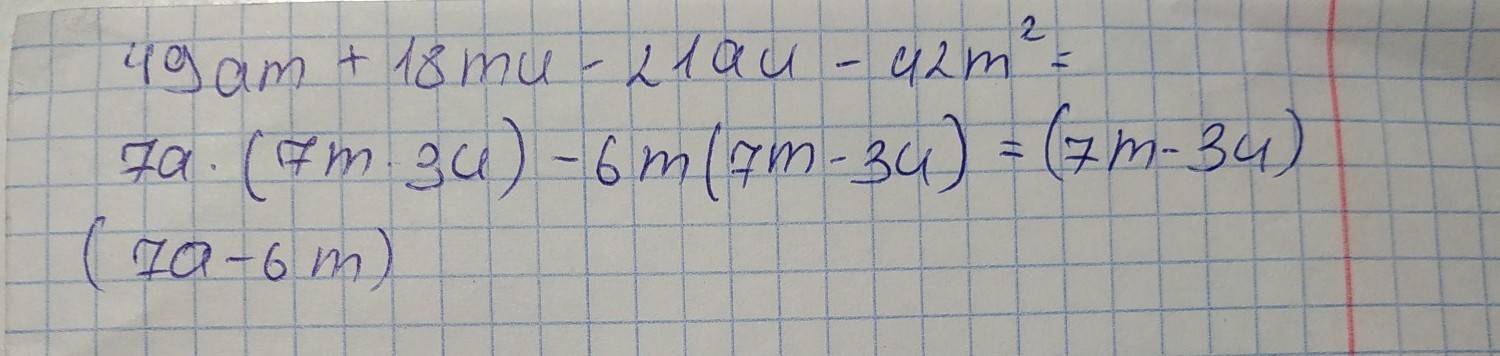 49am + 18mu - 21au - 42m² =
7a · (7m - 3u) - 6m(7m - 3u) = (7m - 3u)
(7a - 6m)